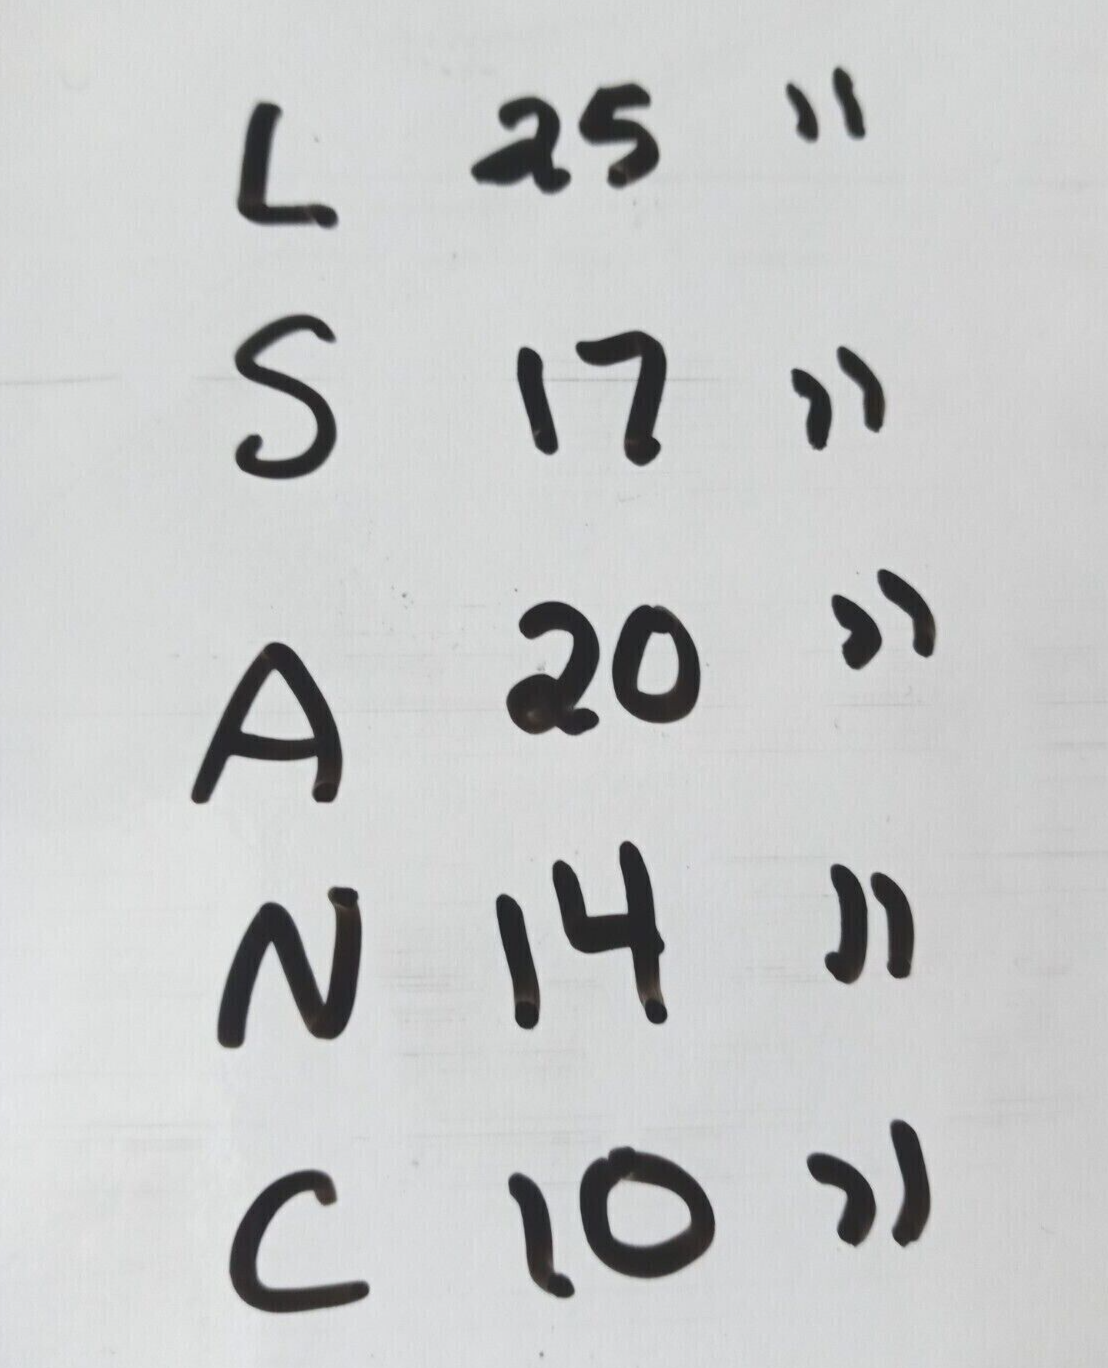 L 25 "
S 17 "
A 20 "
N 14 "
C 10 "